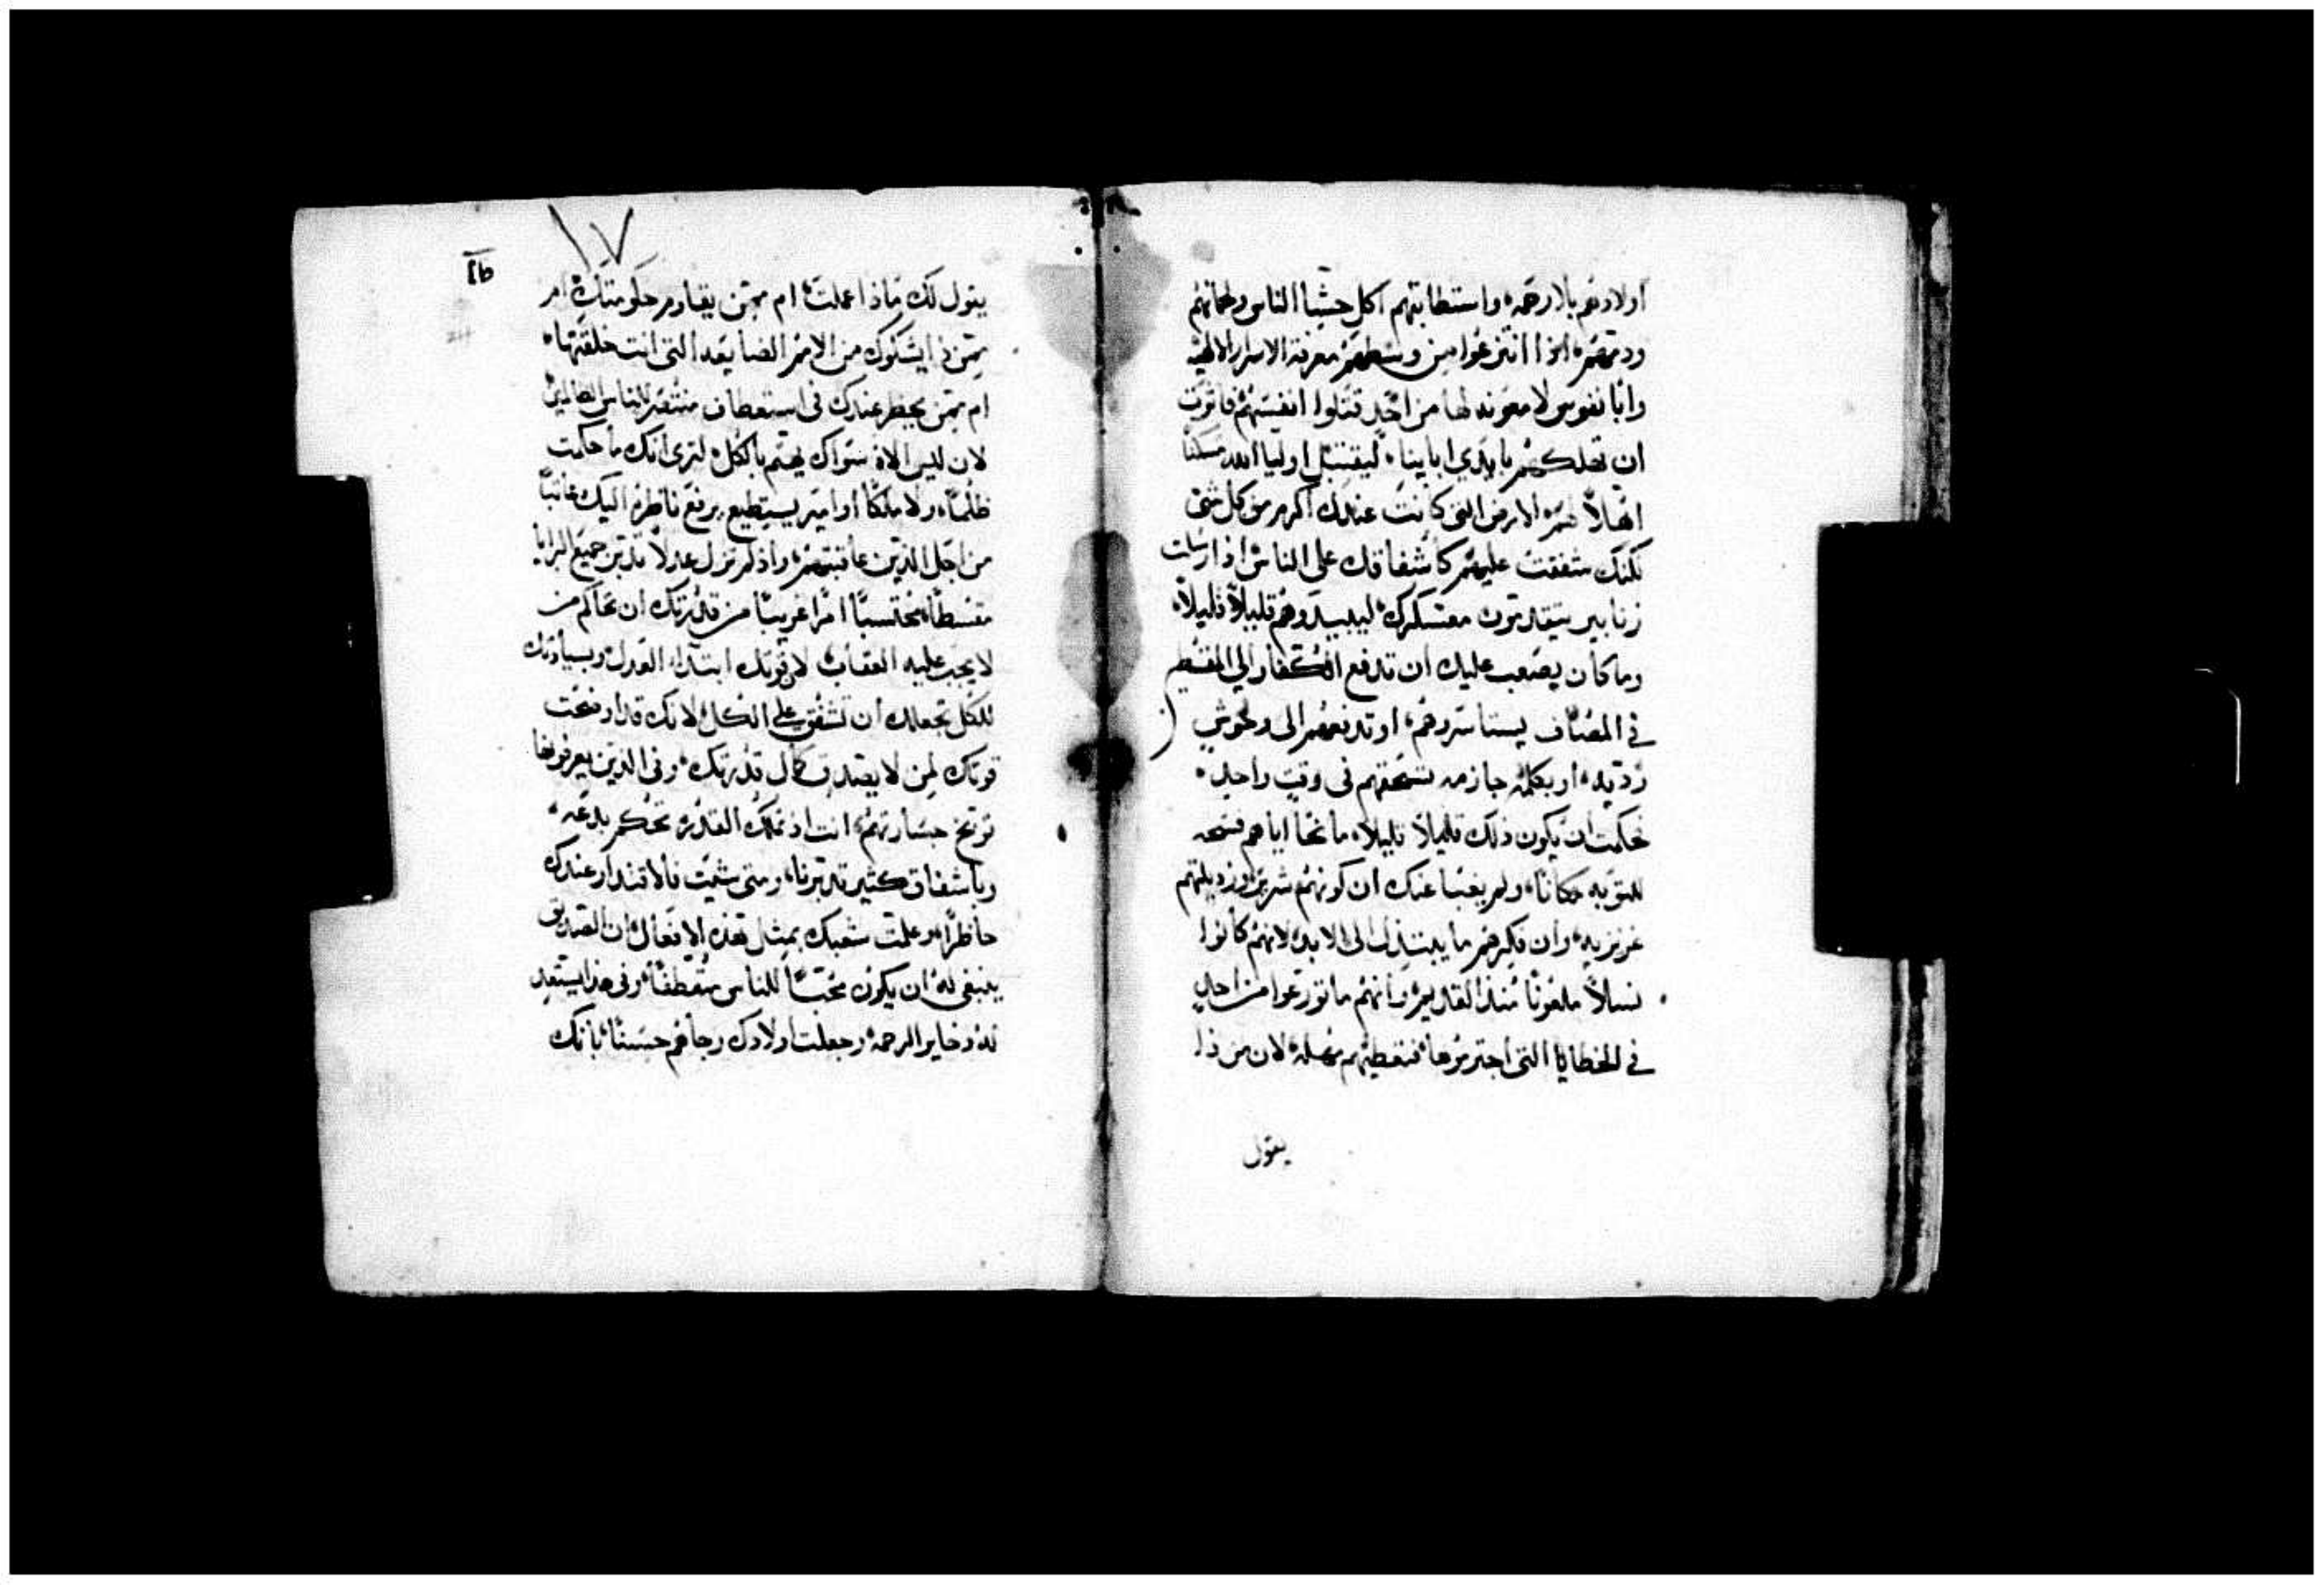 اولادهم بلا رحمه واستطابتهم اكل حشا الناس ولحمانهم
ودمهم اذ انتزعوا من وسطهم معرفة الاسرار الالهيه
وابا نفوس لا معونه لها من احد قتلوا انفسهم فاثرت
ان تهلكهم بايدي اباينا ليقتبل اوليا الله مسكنا
اهلا لهم الارض التي كانت عندك اكرم من كل شي
لكنك شفقت عليهم كاشفاقك على الناس اذ ارسلت
زنابير يتقدمون معسكرك ليبيدوهم قليلا قليلا
وما كان يصعب عليك ان تدفع الكفار الى المقسطين
في المصاف يستاسروهم او تدفعهم الى وحوش
رديه او بكلمه جازمه تسحقهم في وقت واحد
فحكمت ان يكون ذلك قليلا قليلا مانحا اياهم فسحه
للتوبه مكانا ولم يغبا عنك ان كونهم شرير ورذيلتهم
غريزيه وان فكرهم ما يبتدل الى الابد لانهم كانوا
نسلا ملعونا منذ القديم وانهم ما تورعوا من احد
في الخطايا التي اجترموها فتعطيهم مهله لان من ذا
يقول
١٧
يقول لك ماذا عملت ام ممن يقاوم حكومتك ام
ممن ذا يشكوك من الامم الضايعه التي انت خلقتها
ام ممن يحضر عندك في استعطاف منتقم للناس الظالمين
لان ليس الاه سواك يهتم بالكل لتري انك ما حكمت
ظلما ولا ملكا او امير يستطيع يرفع ناظره اليك عاتبا
من اجل الذين عاقبتهم واذ لم تزل عدلا تدبر جميع البرايا
مقسطا محتسبا امرا غريبا من قدرتك ان تحاكم من
لا يجب عليه العقاب لان قوتك ابتدا العدل وبسيادتك
للكل تجعلك ان تشفق على الكل لانك قد اوضحت
قوتك لمن لا يصدق كمال قدرتك وفي الذين يعرفونها
توبخ جسارتهم انت اذ تملك القدره تحكم بدعه
وباشفاق كثير تدبرنا ومتى شيت فالاقتدار عندك
حاضرا وعلمت شعبك بمثل هذه الافعال ان الصديق
ينبغي له ان يكون محبا للناس متعطفا وفي هذا يستعد
له ذخاير الرحمه وجعلت اولادك رجاهم حسنا بانك